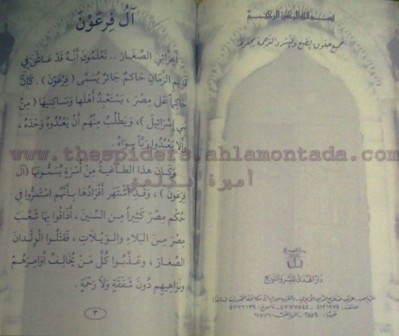 آلُ فِرْعَوْنَ
أحبائي الصغار .. تعلمون أنه قد عاش في
قديم الزمان حاكم جائر يسمى ( فرعون ) . كان
حاكماً على مصر ، يستعبد أهلها وساكنيها ( من
بني إسرائيل ) ، ويطلب منهم أن يعبدوه وحده ،
وألا يعبدوا رباً سواه .
وكان هذا الطاغية من أسرة يسمونها ( آل
فرعون ) ، وقد اشتهر أفرادها بأنهم استمروا في
حكم مصر كثيراً من السنين ، أذاقوا بها شعب
مصر من البلاء والويلات ، فقتلوا الولدان
الصغار ، وعذبوا كل من يخالف أوامرهم
ونواهيهم دون شفقة ولا رحمة .
٣
جميع حقوق الطبع والنشر والترجمة محفوظة
دار الهدى للنشر والتوزيع
www.thespiders.ahlamontada.com
أميرة بكلمتى